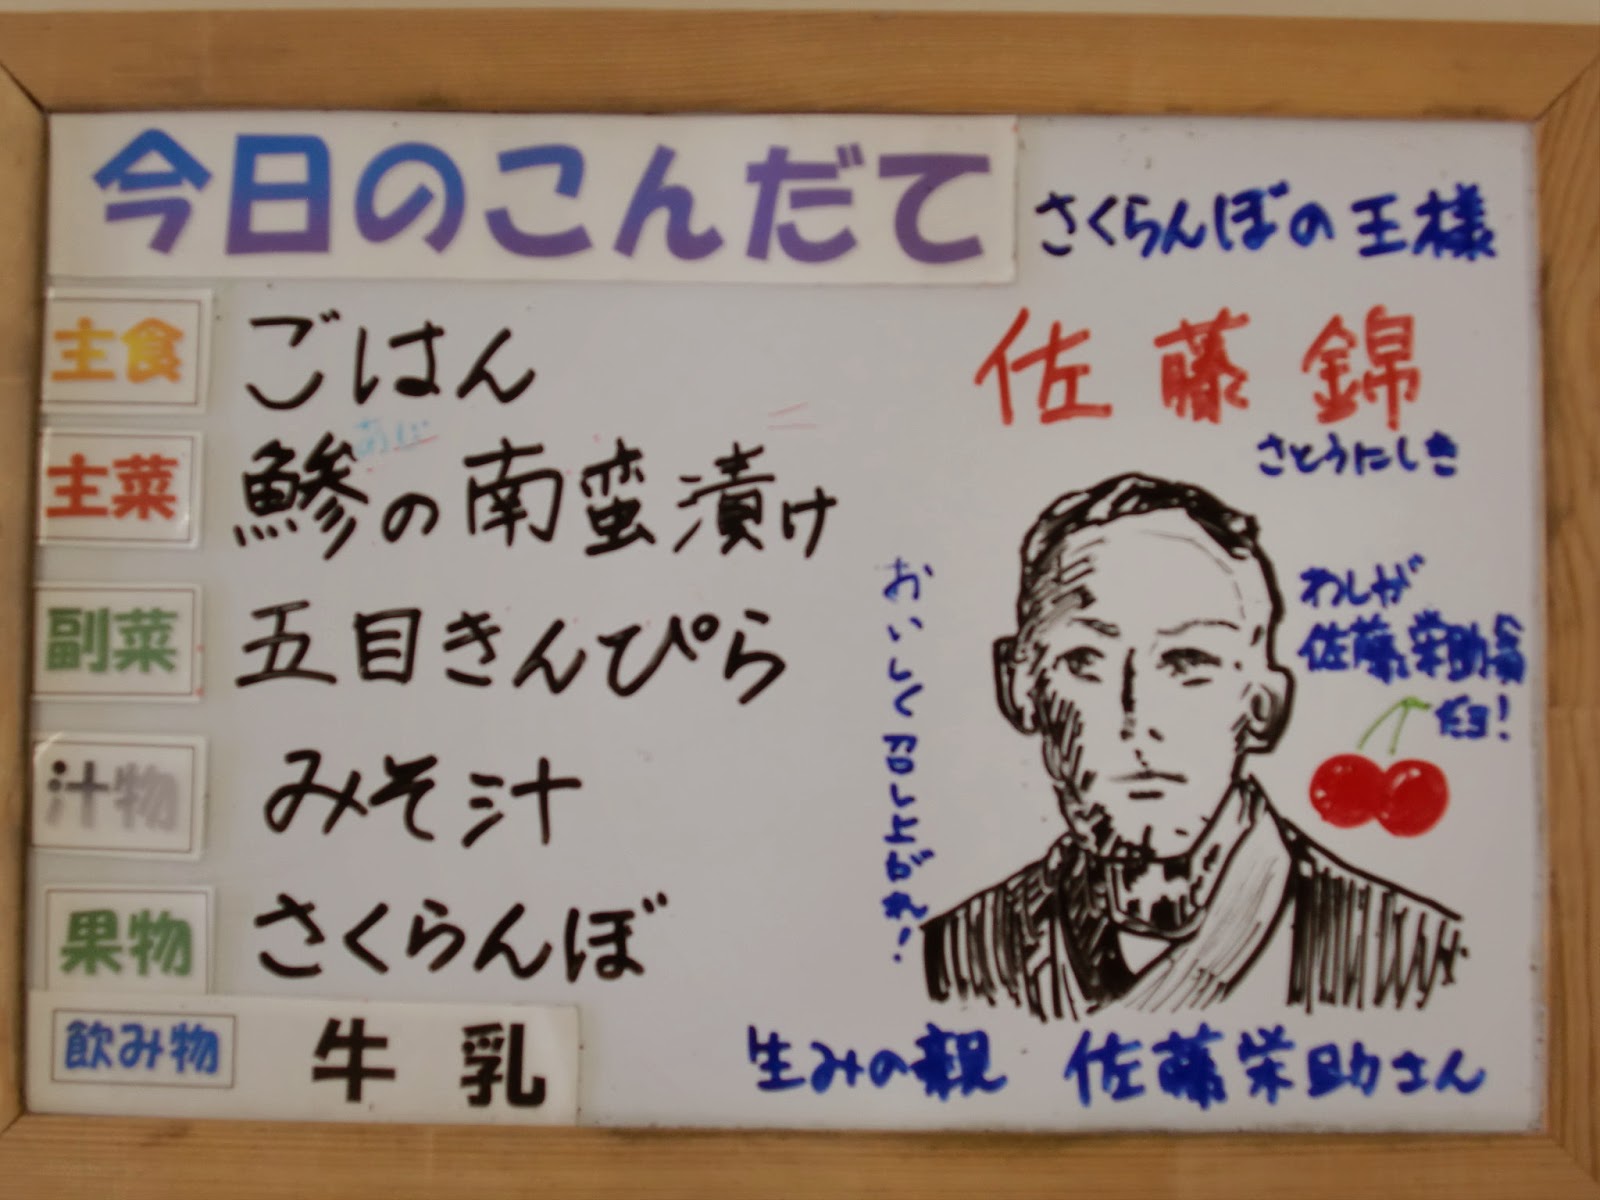 今日のこんだて
さくらんぼの王様
佐藤錦
さとうにしき
主食 ごはん
あじ
主菜 鯵の南蛮漬け
副菜 五目きんぴら
汁物 みそ汁
果物 さくらんぼ
飲み物 牛乳
おいしく召し上がれ!
わしが
佐藤栄助翁
だヨ!
生みの親 佐藤栄助さん